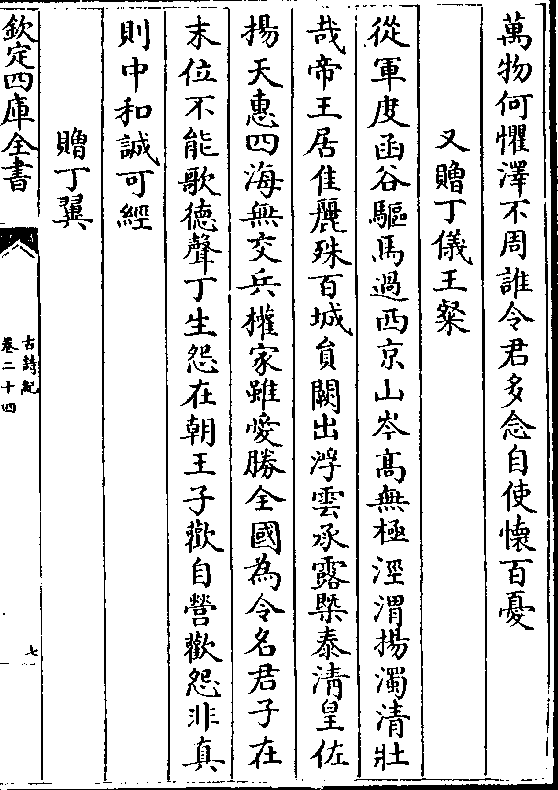 萬物何懼澤不周誰令君多念自使懷百憂
又贈丁儀王粲
從軍度函谷驅馬過西京山岑髙無極涇渭揚濁清壯
哉帝王居佳麗殊百城員闕出浮雲承露槩泰清皇佐
揚天惠四海無交兵權家雖愛勝全國為令名君子在
末位不能歌徳聲丁生怨在朝王子歡自營歡怨非真
則中和誠可經
贈丁翼
欽定四庫全書
古詩紀
卷二十四
七